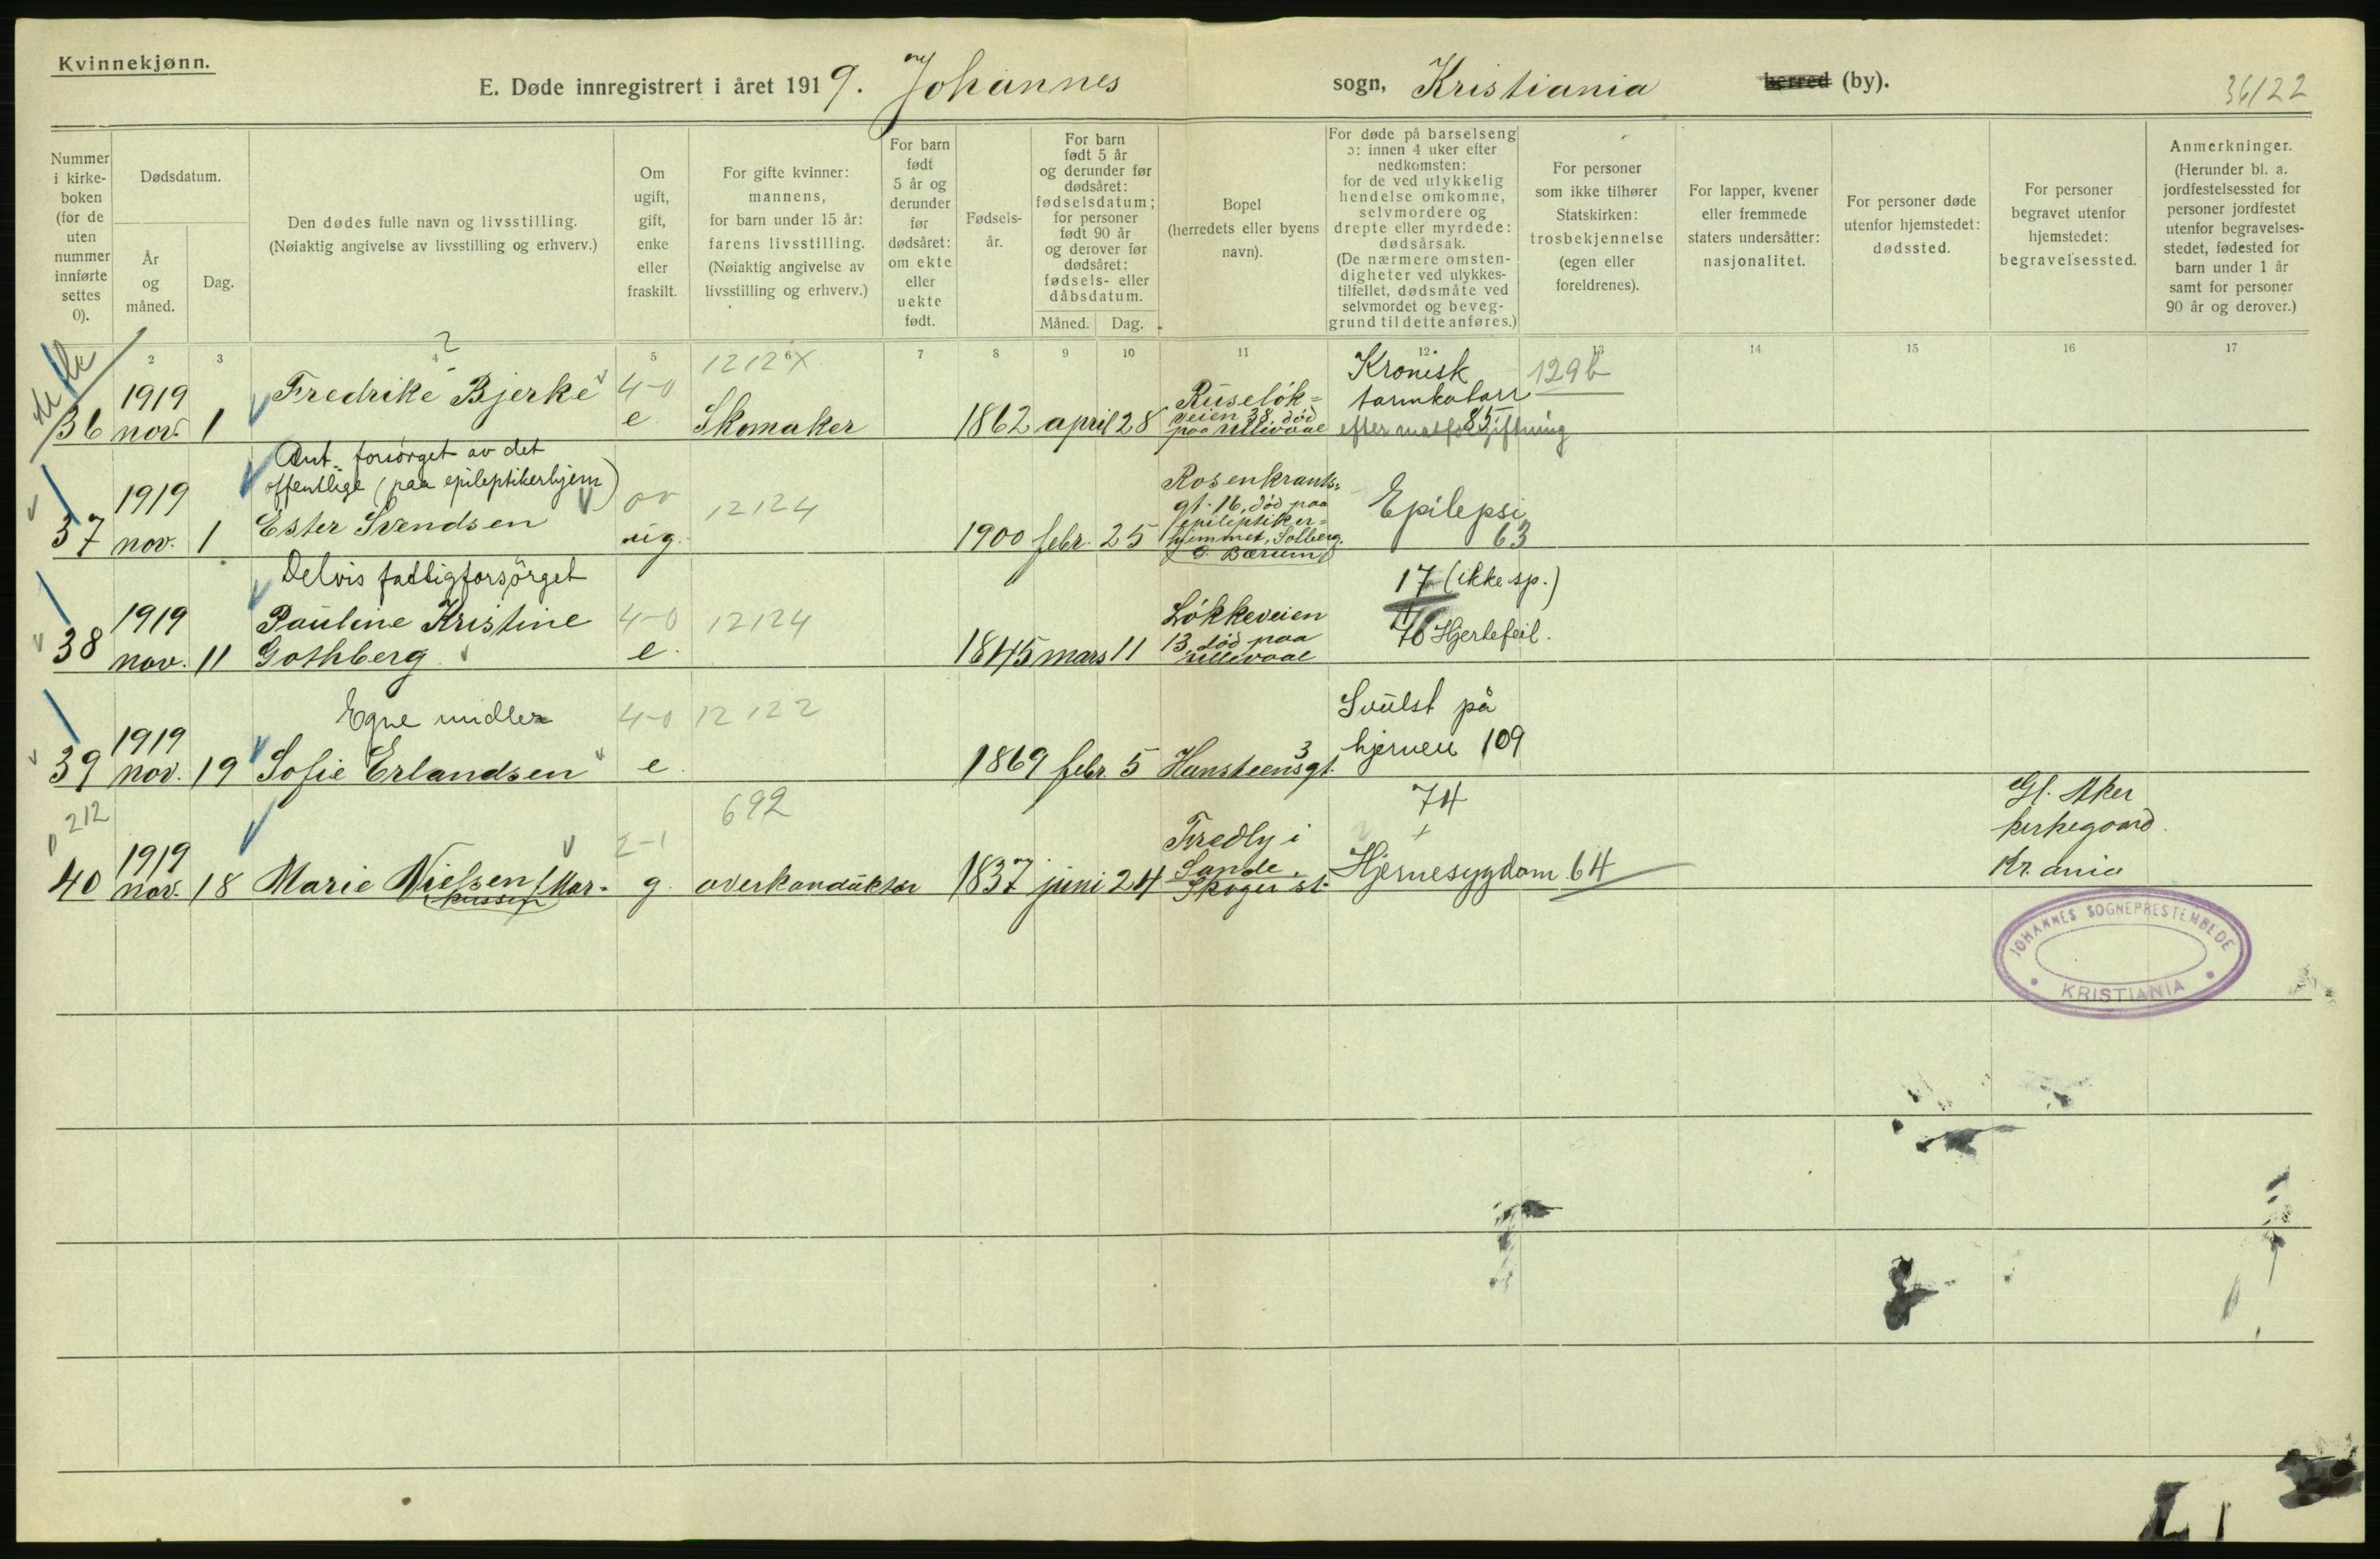 Kvinnekjønn.
E. Døde innregistrert i året 1919. Johannes sogn, Kristiania herred (by).
36/22
Nummer i kirke-boken (for de uten nummer innførte settes 0).
Dødsdatum.
År og måned.
Dag.
Den dødes fulle navn og livsstilling.
(Nøiaktig angivelse av livsstilling og erhverv.)
Om ugift, gift, enke eller fraskilt.
For gifte kvinner: mannens, for barn under 15 år: farens livsstilling.
(Nøiaktig angivelse av livsstilling og erhverv.)
For barn født 5 år og derunder før dødsåret: om ekte eller uekte født.
Fødsels-år.
For barn født 5 år og derunder før dødsåret: fødselsdatum; for personer født 90 år og derover før dødsåret: fødsels- eller dåbsdatum.
Måned.
Dag.
Bopel (herredets eller byens navn).
For døde på barselseng ɔ: innen 4 uker efter nedkomsten: for de ved ulykkelig hendelse omkomne, selvmordere og drepte eller myrdede: dødsårsak.
(De nærmere omsten-digheter ved ulykkes-tilfellet, dødsmåte ved selvmordet og beveg-grund til dette anføres.)
For personer som ikke tilhører Statskirken: trosbekjennelse (egen eller foreldrenes).
For lapper, kvener eller fremmede staters undersåtter: nasjonalitet.
For personer døde utenfor hjemstedet: dødssted.
For personer begravet utenfor hjemstedet: begravelsessted.
Anmerkninger.
(Herunder bl. a. jordfestelsessted for personer jordfestet utenfor begravelses-stedet, fødested for barn under 1 år samt for personer 90 år og derover.)
2 3 4 5 6 7 8 9 10 11 12 13 14 15 16 17
36 1919 nov. 1 Fredrike Bjerke 4-0 e 1212X Skomaker 1862 april 28
Ruseløk=
veien 38, død
paa Ullevaal
Kronisk 129b
tarmkatarr
efter 85
Ant. forsørget av det
offentlige (paa epileptikerhjem)
37 1919 nov. 1 Ester Svendsen ug. 12124 1900 febr. 25
Rosenkrants-
gt. 16, død paa
epileptiker=
hjemmet, Solberg,
Bærum
Epilepsi
63
Delvis fattigforsørget
38 1919 nov. 11 Pauline Kristine
Gothberg 4-0 e. 12124 1845 mars 11
Løkkeveien
13, død paa
Ullevaal
17 (ikke sp.)
Hjertefeil.
Egne midler
39 1919 nov. 19 Sofie Erlandsen 4-0 e. 12122 1869 febr. 5 Hansteensgt. 3
Svulst på
hjernen 109
212
40 1919 nov. 18 Marie Nielsen 2-1 g. 692 overkonduktør 1837 juni 24
Fredly i
Sande,
Skoger st.
74
Hjernesygdom 64
Gl. Aker
kirkegaard.
Kr.ania
JOHANNES SOGNEPRESTEMBEDE
KRISTIANIA